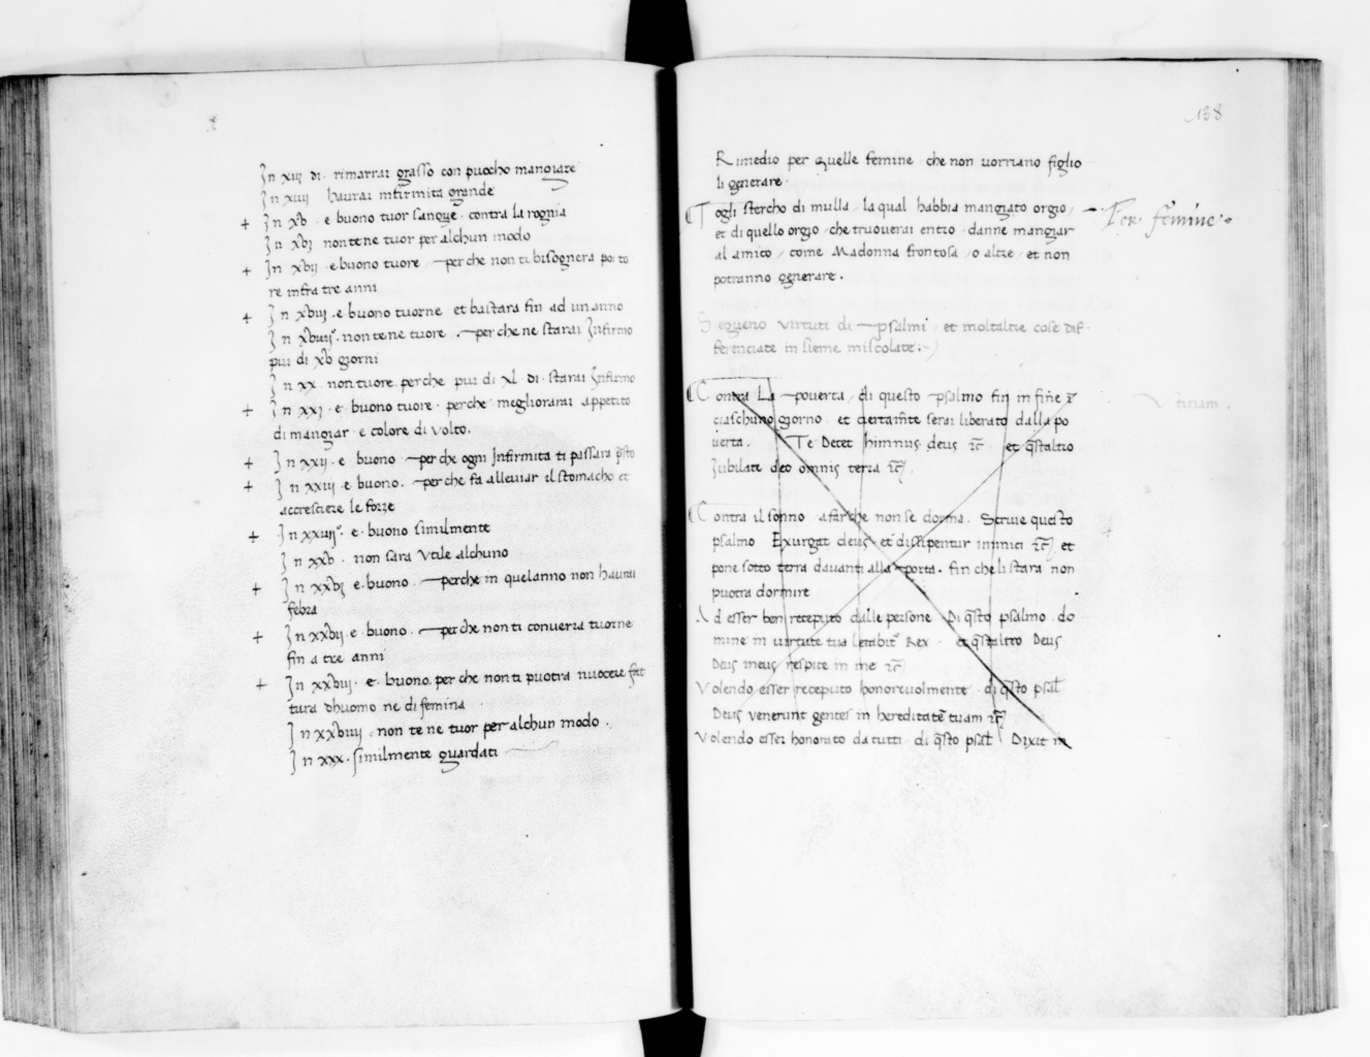 In xiij di. rimarrai grasso con puocho mangiare
In xiiij haurai infirmita grande
+ In xb. e buono tuor sangue. contra la rognia
In xbj non tene tuor per alchun modo
+ In xbij. e buono tuore, perche non ti bisognera poi to
re infra tre anni
+ In xbiij. e buono tuorne et bastara fin ad un anno
In xbiiijº. non tene tuore. perche ne starai Infirmo
piu di xb giorni
In xx. non tuore. perche piu di xl di. starai Infirmo
+ In xxj. e. buono tuore. perche megliorarai appetito
di mangiar e colore di volto.
+ In xxij. e buono perche ogni Infirmita ti passara pṡto
+ In xxiij. e buono. perche fa alleuiar il stomacho et
accresciere le forze
+ In xxiiijº. e. buono similmente
In xxb. non sara vtile alchuno
+ In xxbj e. buono. perche in quelanno non haurai
febra
+ In xxbij. e buono. perche non ti conuerra tuorne
fin a tre anni
+ In xxbiij. e. buono. perche non ti puotra nuocere fat
tura dhuomo ne di femina
In xxbiiij. non te ne tuor per alchun modo.
In xxx. similmente guardati
138
Rimedio per quelle femine che non vorriano figlio
li generare.
Togli stercho di mulla, la qual habbia mangiato orgio,
Per. femine.
et di quello orgio che truouerai entro, danne mangiar
al amico, come Madonna frontosa, o altre, et non
potranno generare.
Segueno virtuti di psalmi et moltaltre cose dif-
ferenciate in sieme miscolate:-)
Contra La pouerta, di questo psalmo fin in fine
ciaschuno giorno. et certam̃te serai liberato dalla po
uerta. Te Decet himnus. deus &c̃ et q̃staltro
Iubilate deo omnis terra &c̃
Contra il sonno a far che non se dorma. Scriue questo
psalmo Exurgat deus et dissipentur inimici &c̃ et
pone sotto terra dauanti alla porta. fin che li stara non
puotra dormire
Ad esser ben receputo dalle persone Di q̃sto psalmo. do
mine in uirtute tua letabitº Rex et q̃staltro Deus
Deus meus respice in me &c̃
Volendo esser receputo honoreuolmente. di q̃sto psal̃
Deus venerunt gentes in hereditatẽ tuam &c̃
Volendo esser honorato da tutti di q̃sto psal̃ Dixit in